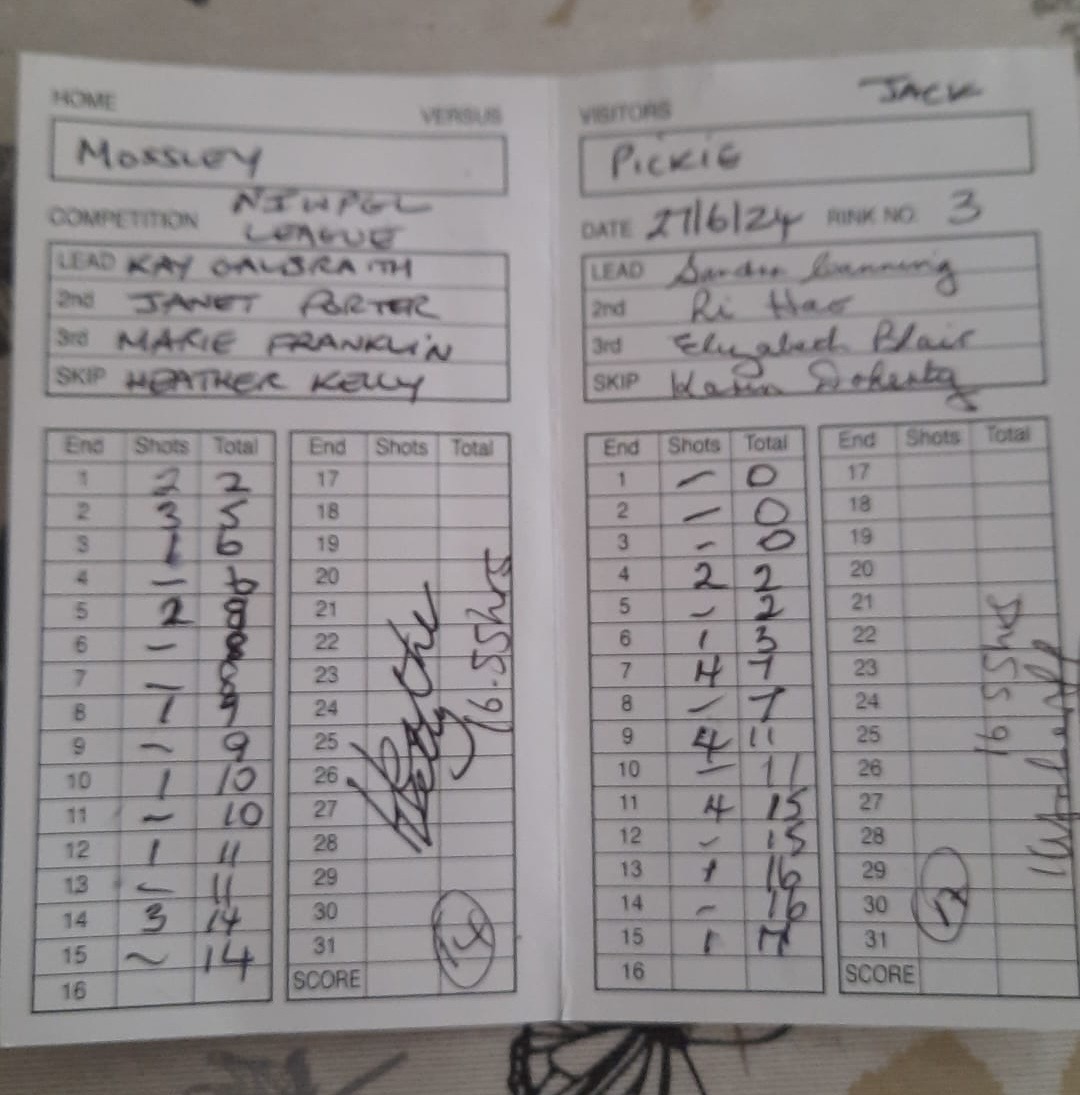 HOME VERSUS
MOSSLEY
COMPETITION NIWPGL
LEAGUE
LEAD KAY GALBRAITH
2nd JANET PORTER
3rd MARIE FRANKLIN
SKIP HEATHER KELLY
End Shots Total
1 2 2
2 3 5
3 1 6
4 – 6
5 2 8
6 – 8
7 – 8
8 1 9
9 – 9
10 1 10
11 – 10
12 1 11
13 – 11
14 3 14
15 – 14
16
End Shots Total
17
18
19
20
21
22
23
24
25
26
27
28
29
30
31
SCORE
14
Heather
Kelly
16.55hrs
JACK
VISITORS
PICKIE
DATE 27/6/24 RINK NO. 3
LEAD Sandra Canning
2nd Li Hao
3rd Elizabeth Blair
SKIP Karen Doherty
End Shots Total
1 – 0
2 – 0
3 – 0
4 2 2
5 – 2
6 1 3
7 4 7
8 – 7
9 4 11
10 – 11
11 4 15
12 – 15
13 1 16
14 – 16
15 1 17
16
End Shots Total
17
18
19
20
21
22
23
24
25
26
27
28
29
30
31
SCORE
17
16 55hrs